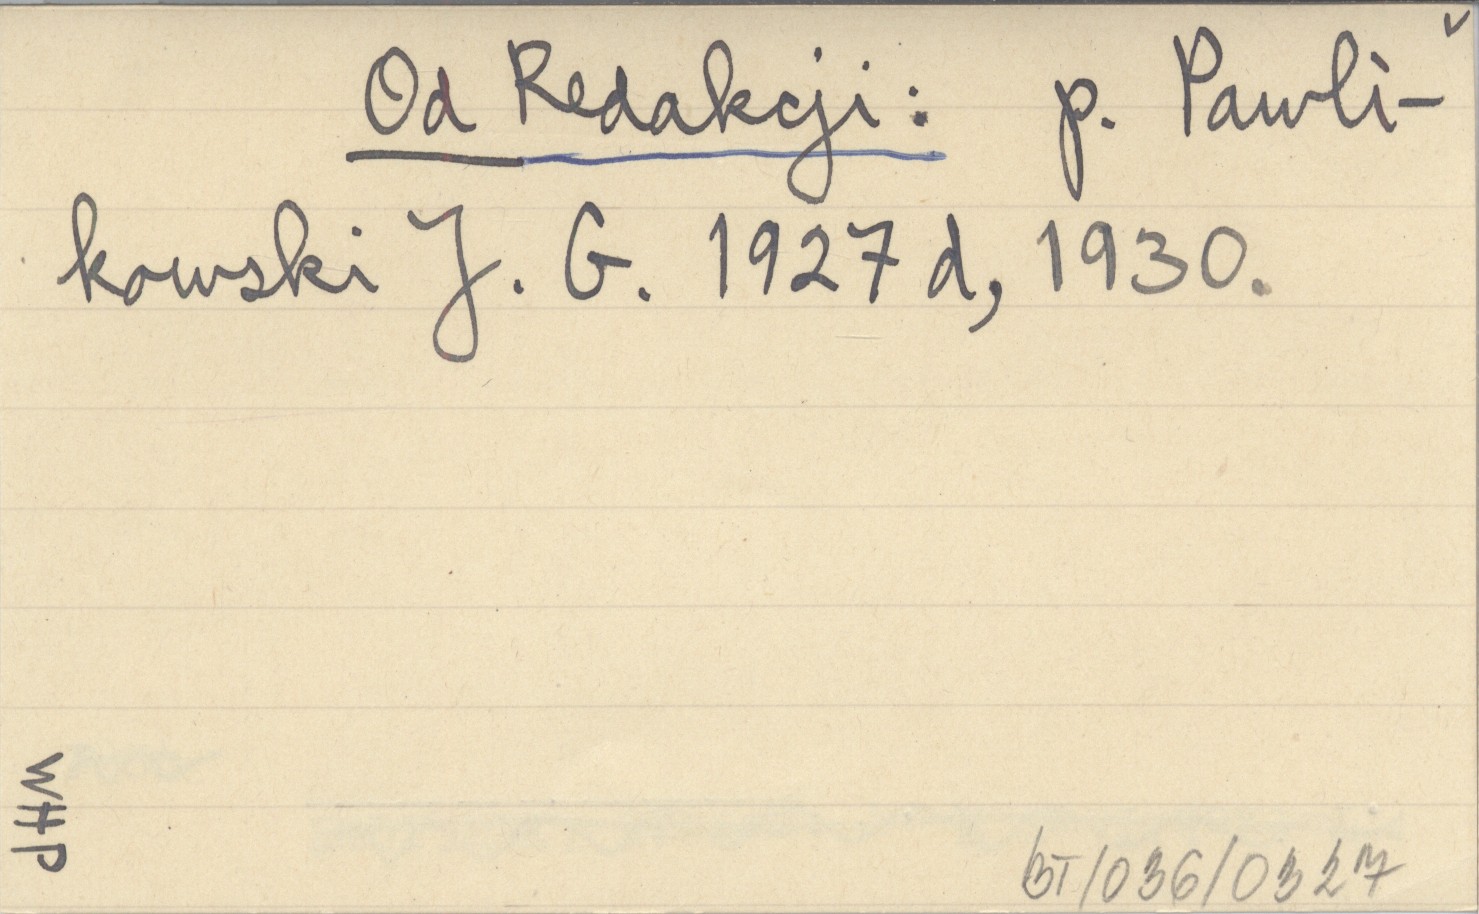 Od Redakcji: p. Pawli-
kowski J. G. 1927d, 1930.
WHP
BT/036/0327